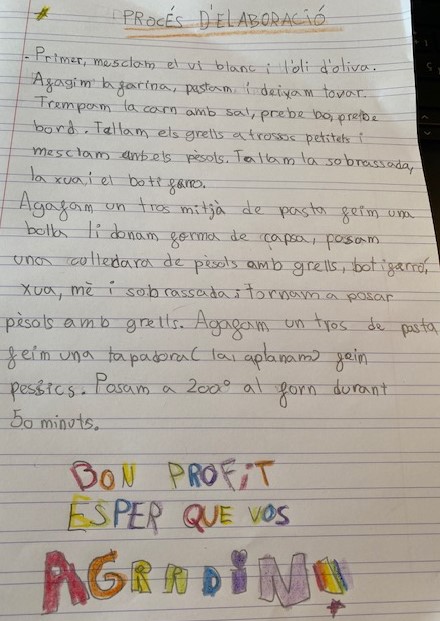 PROCÉS D'ELABORACIÓ
- Primer, mesclam el vi blanc i l'òli d'oliva.
Agagim la farina, pastam i deixam tovar.
Trempam la carn amb sal, prebe bo, prebe
bord. Tallam els grells a trossos petitets i
mesclam amb els pèsols. Tallam la sobrassada,
la xua i el botifarro.
Agafam un tros mitjà de pasta feim una
bolla li donam forma de capsa, posam
una culledara de pèsols amb grells, botifarró,
xua, mè i sobrassada i tornam a posar
pèsols amb grells. Agagam un tros de pasta
feim una tapadora (lai aplanam) feim
pessics. Posam a 200º al forn durant
50 minuts.
BON PROFIT
ESPER QUE VOS
AGRADIN!